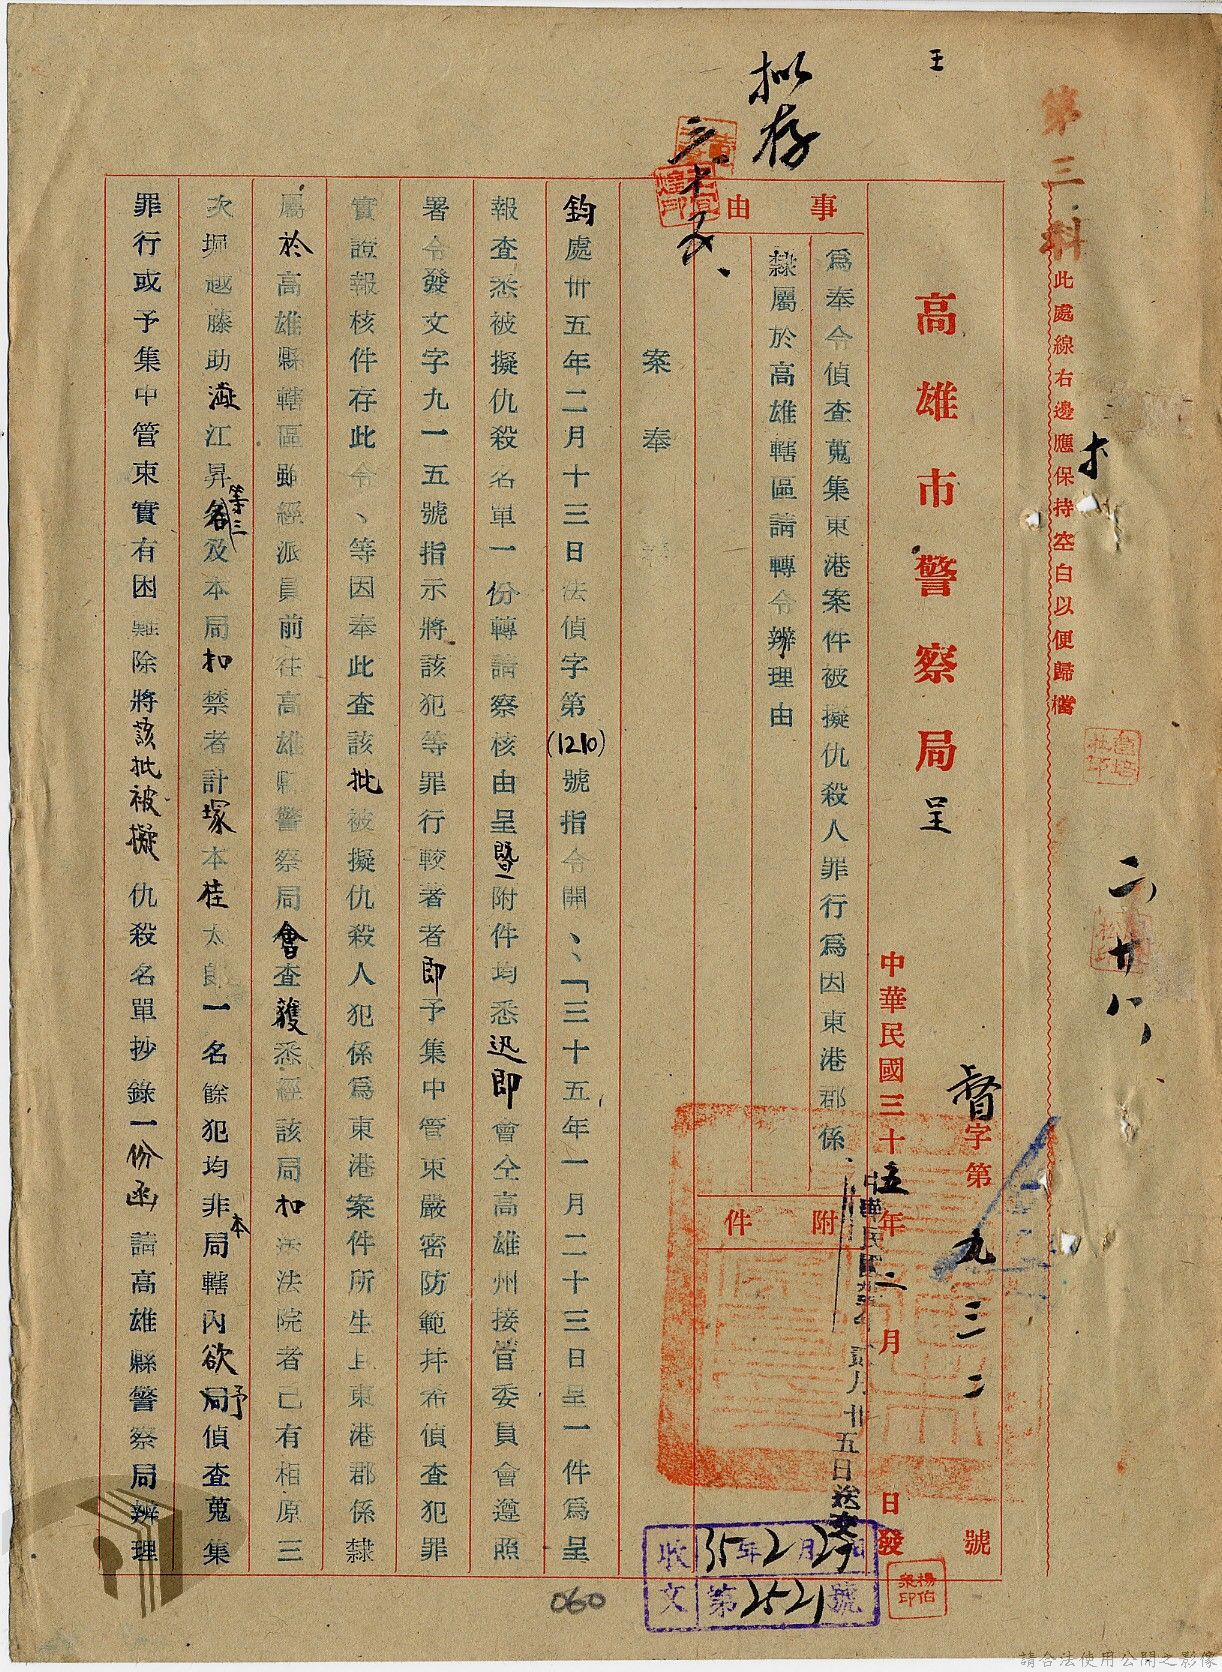 王
第三科
此處線右邊應保持空白以便歸檔
二、廿八、
高雄市警察局呈
督字第九三二號
中華民國三十五年二月日發
貳月廿五日送文
事由
為奉令偵查蒐集東港案件被擬仇殺人罪行為因東港郡係
隸屬於高雄轄區請轉令辦理由
附件
擬存
案奉
鈞處卅五年二月十三日法偵字第(1210)號指令開、「三十五年一月二十三日呈一件為呈
報查悉被擬仇殺名單一份轉請察核由呈暨附件均悉迅即會仝高雄州接管委員會遵照
署令發文字九一五號指示將該犯等罪行較著者即予集中管束嚴密防範并布偵查犯罪
實證報核件存此令、等因奉此查該批被擬仇殺人犯係為東港案件所生且東港郡係隸
屬於高雄縣轄區雖經派員前往高雄縣警察局會查護悉經該局扣送法院者已有相原三
次堀越藤助江昇等三名及本局扣禁者計塚本桂太郎一名餘犯均非本局轄內欲予偵查蒐集
罪行或予集中管束實有困難除將該批被擬仇殺名單抄錄一份函請高雄縣警察局辦理
收文
35年2月27日
第2521號
楊伯
060
請合法使用公開之影像